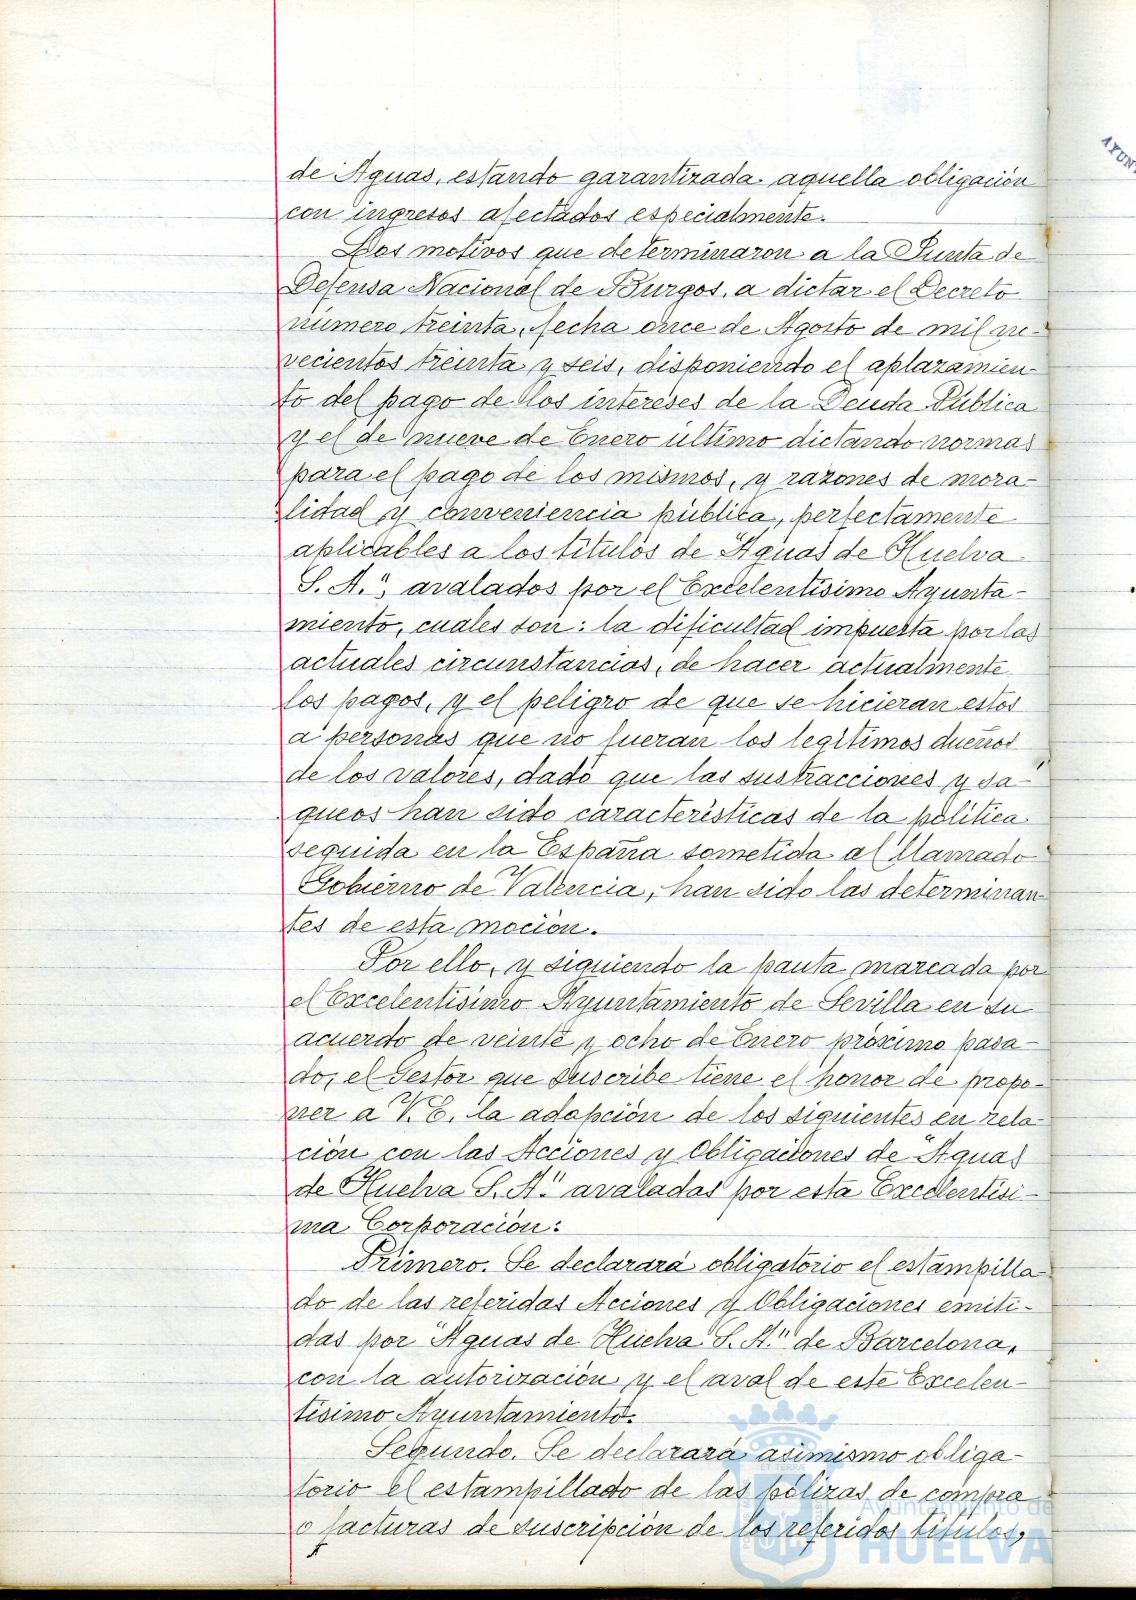 de Aguas, estando garantizada aquella obligación
con ingresos afectados especialmente.
Los motivos que determinaron a la Junta de
Defensa Nacional de Burgos, a dictar el Decreto
número treinta, fecha once de Agosto de mil no-
vecientos treinta y seis, disponiendo el aplazamien-
to del pago de los intereses de la Deuda Pública
y el de nueve de Enero último dictando normas
para el pago de los mismos, y razones de mora-
lidad y conveniencia pública, perfectamente
aplicables a los títulos de "Aguas de Huelva
S. A.", avalados por el Excelentísimo Ayunta-
miento, cuales son: la dificultad impuesta por las
actuales circunstancias, de hacer actualmente
los pagos, y el peligro de que se hicieran estos
a personas que no fueran los legítimos dueños
de los valores, dado que las sustracciones y sa-
queos han sido características de la política
seguida en la España sometida al llamado
Gobierno de Valencia, han sido las determinan-
tes de esta moción.
Por ello, y siguiendo la pauta marcada por
el Excelentísimo Ayuntamiento de Sevilla en su
acuerdo de veinte y ocho de Enero próximo pasa-
do, el Gestor que suscribe tiene el honor de propo-
ner a V. E. la adopción de los siguientes en rela-
ción con las Acciones y Obligaciones de "Aguas
de Huelva S. A." avaladas por esta Excelentísi-
ma Corporación:
Primero. Se declarará obligatorio el estampilla-
do de las referidas Acciones y Obligaciones emiti-
das por "Aguas de Huelva S. A." de Barcelona,
con la autorización y el aval de este Excelen-
tísimo Ayuntamiento.
Segundo. Se declarará asimismo obliga-
torio el estampillado de las pólizas de compra
o facturas de suscripción de los referidos títulos,
Ayuntamiento de
HUELVA